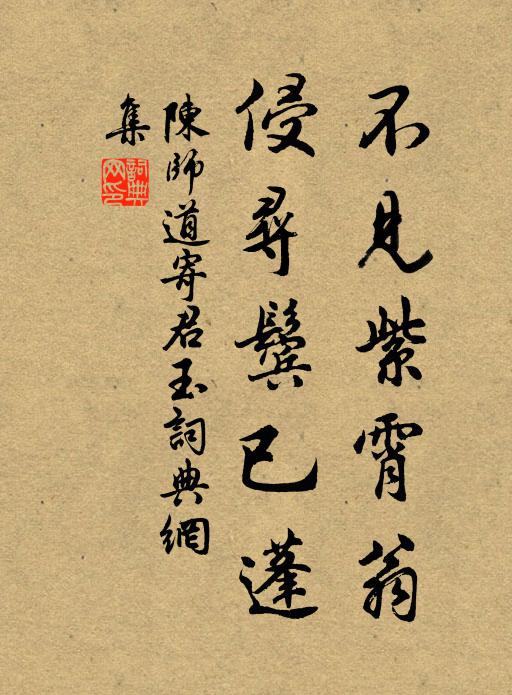 不見紫霄翁
侵尋鬢已蓬
陳師道寄君玉詞典網
集
詞典
网印